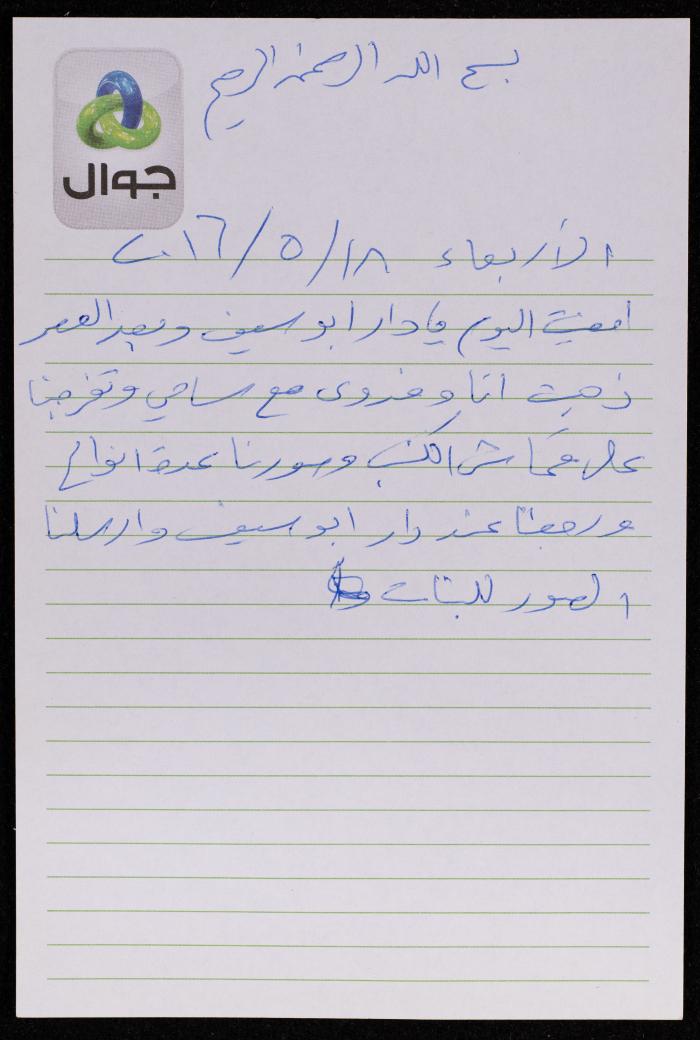 بسم الله الرحمن الرحيم
جوال
الأربعاء ١٨/٥/٢٠١٦
امضيت اليوم في دار ابو سيف وبعد العصر
ذهبت انا وفدوى مع سامي وتفرجنا
على قماش الكنب وصورنا عدة انواع
ورجعنا عند دار ابو سيف وارسلنا
الصور للبنات